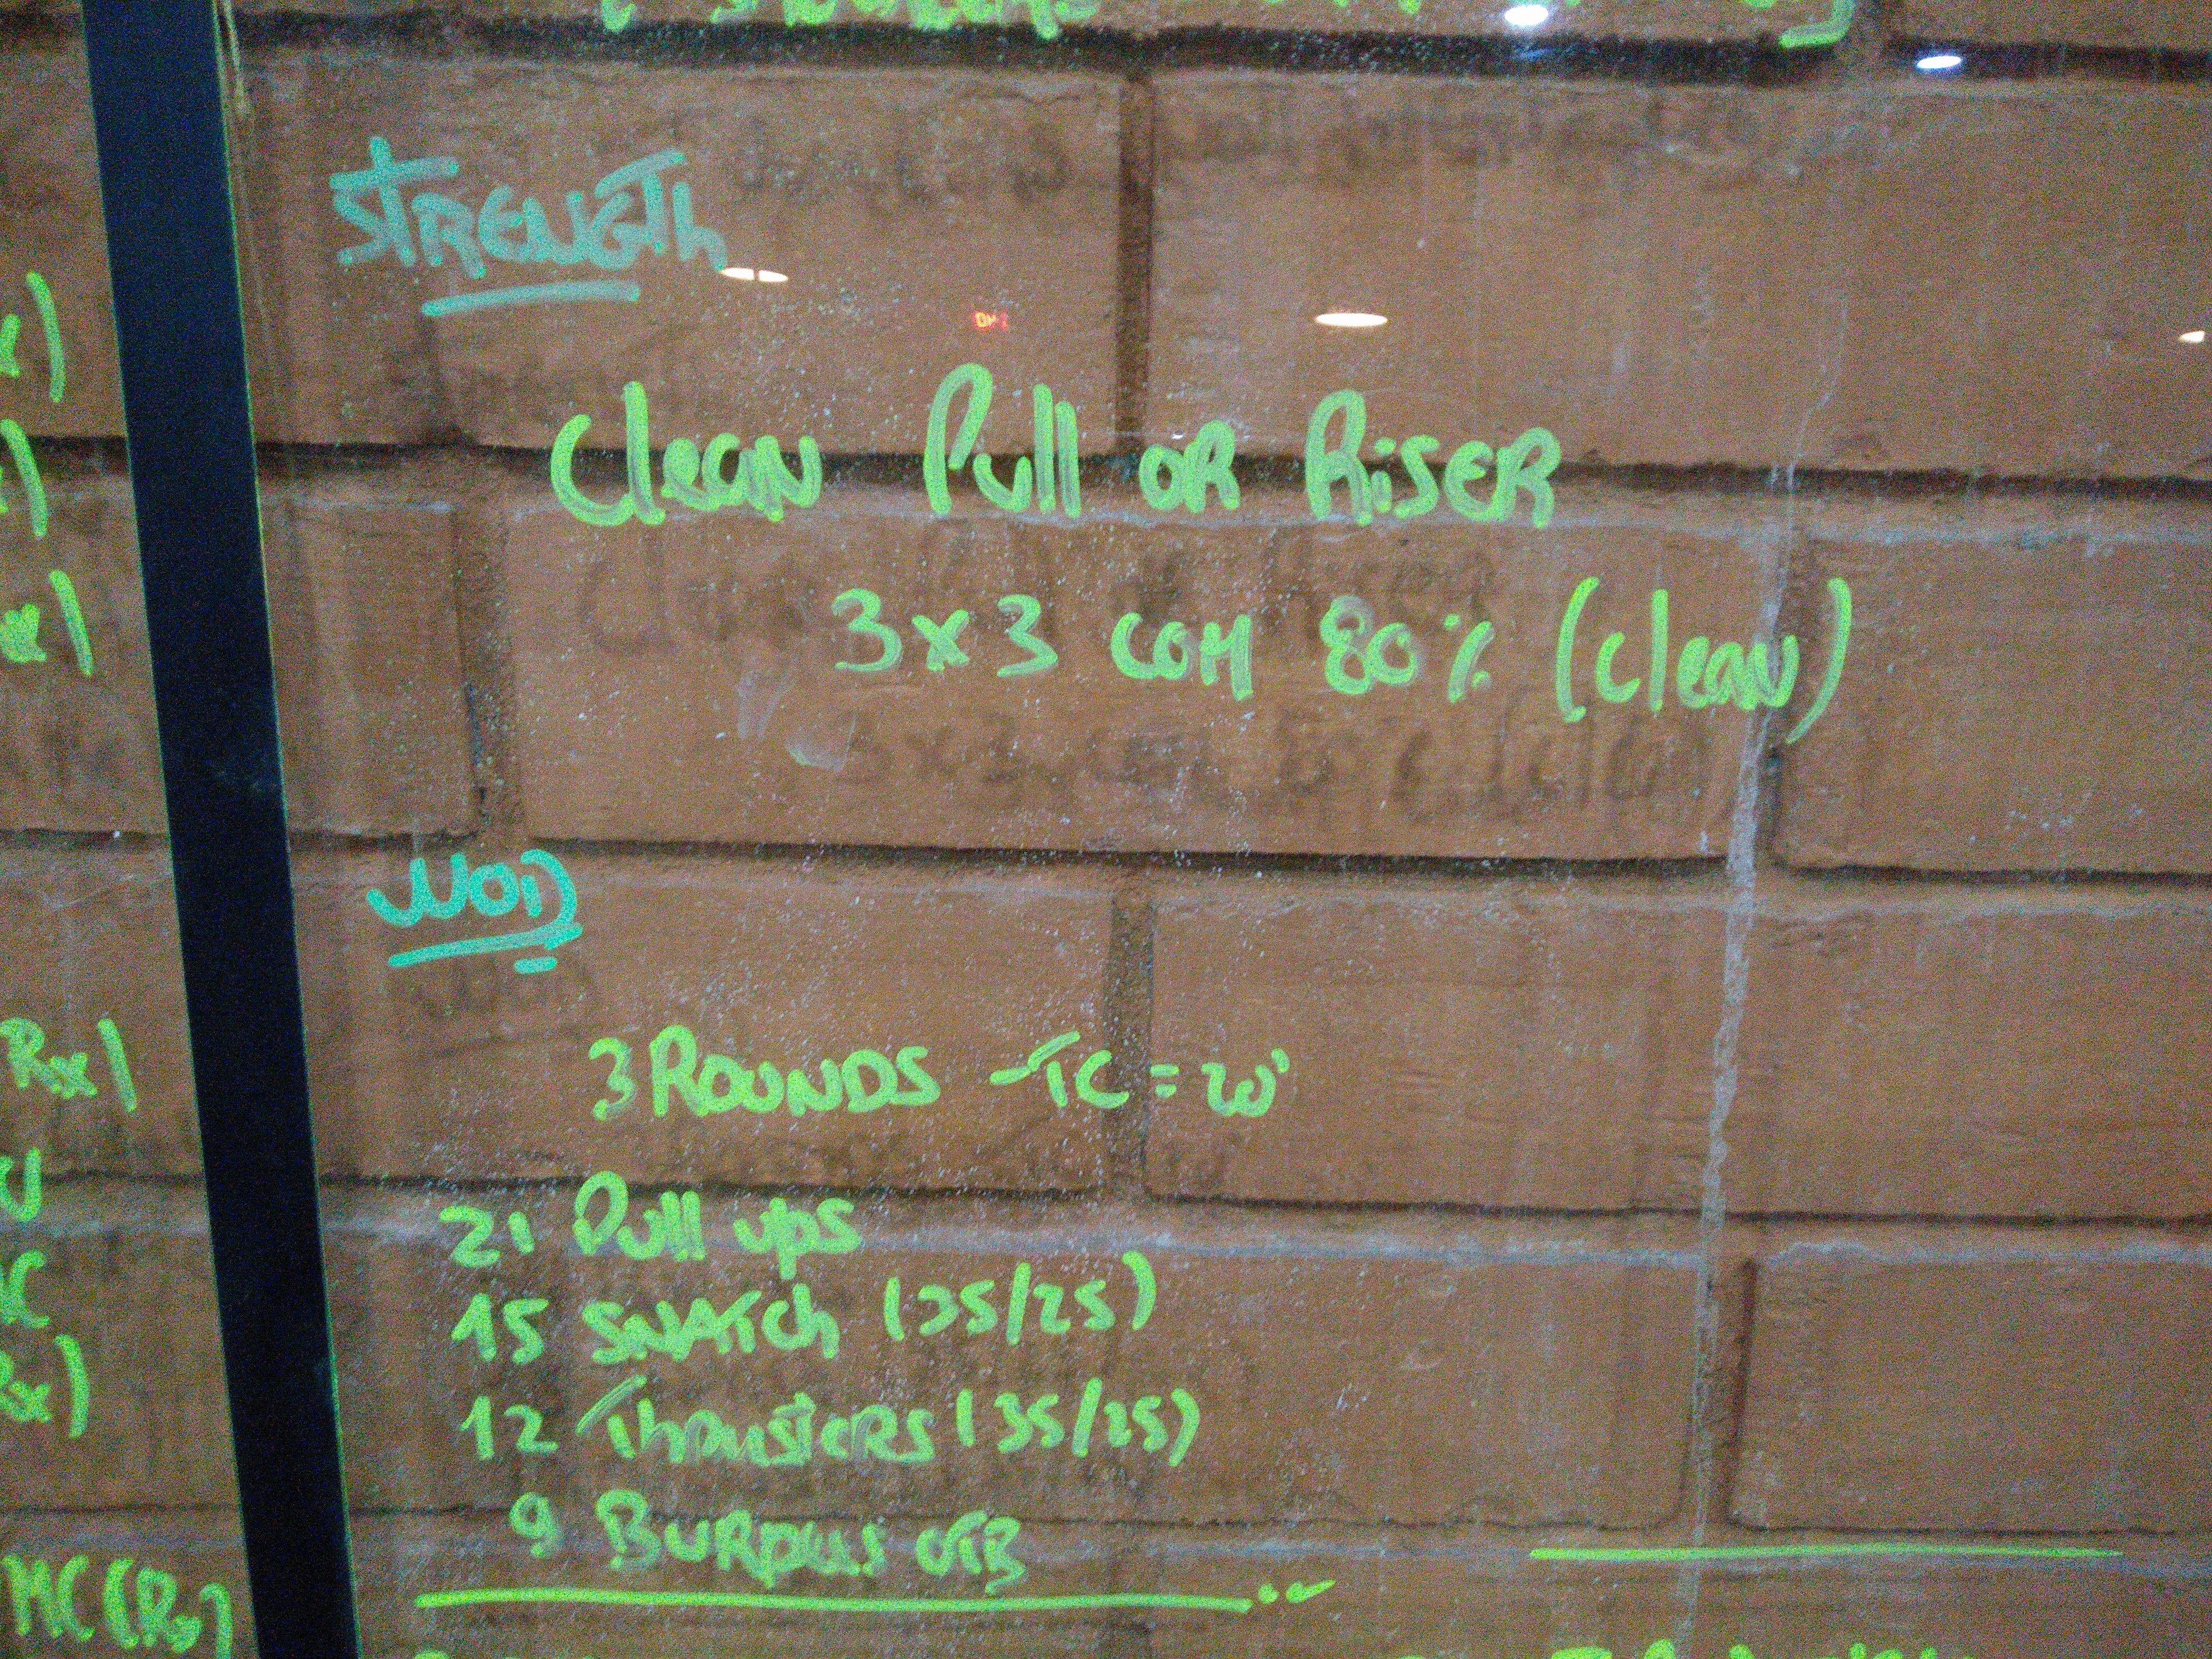 STRENGTH
Clean Pull OR RiSER
3x3 COM 80% (Clean)
WOD
3 ROUNDS - TC = 20'
21 Pull ups
15 SNATCh (35/25)
12 ThRusTERS (35/25)
9 BuRpees OTB
Rx)
MC (Rx)